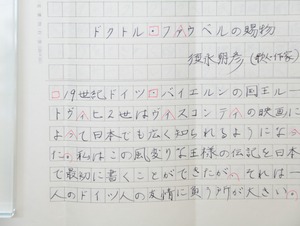 ドクトル・ファウベルの賜物
須永朝彦（歌人・作家）
19世紀ドイツ・バイエルンの国王ルー
トヴィヒ2世はヴィスコンティの映画に
よって日本でも広く知られるようになっ
た。私はこの風変りな王様の伝記を日本
で最初に書くことができたが、それは一
人のドイツ人の友情に負う所が大きい。